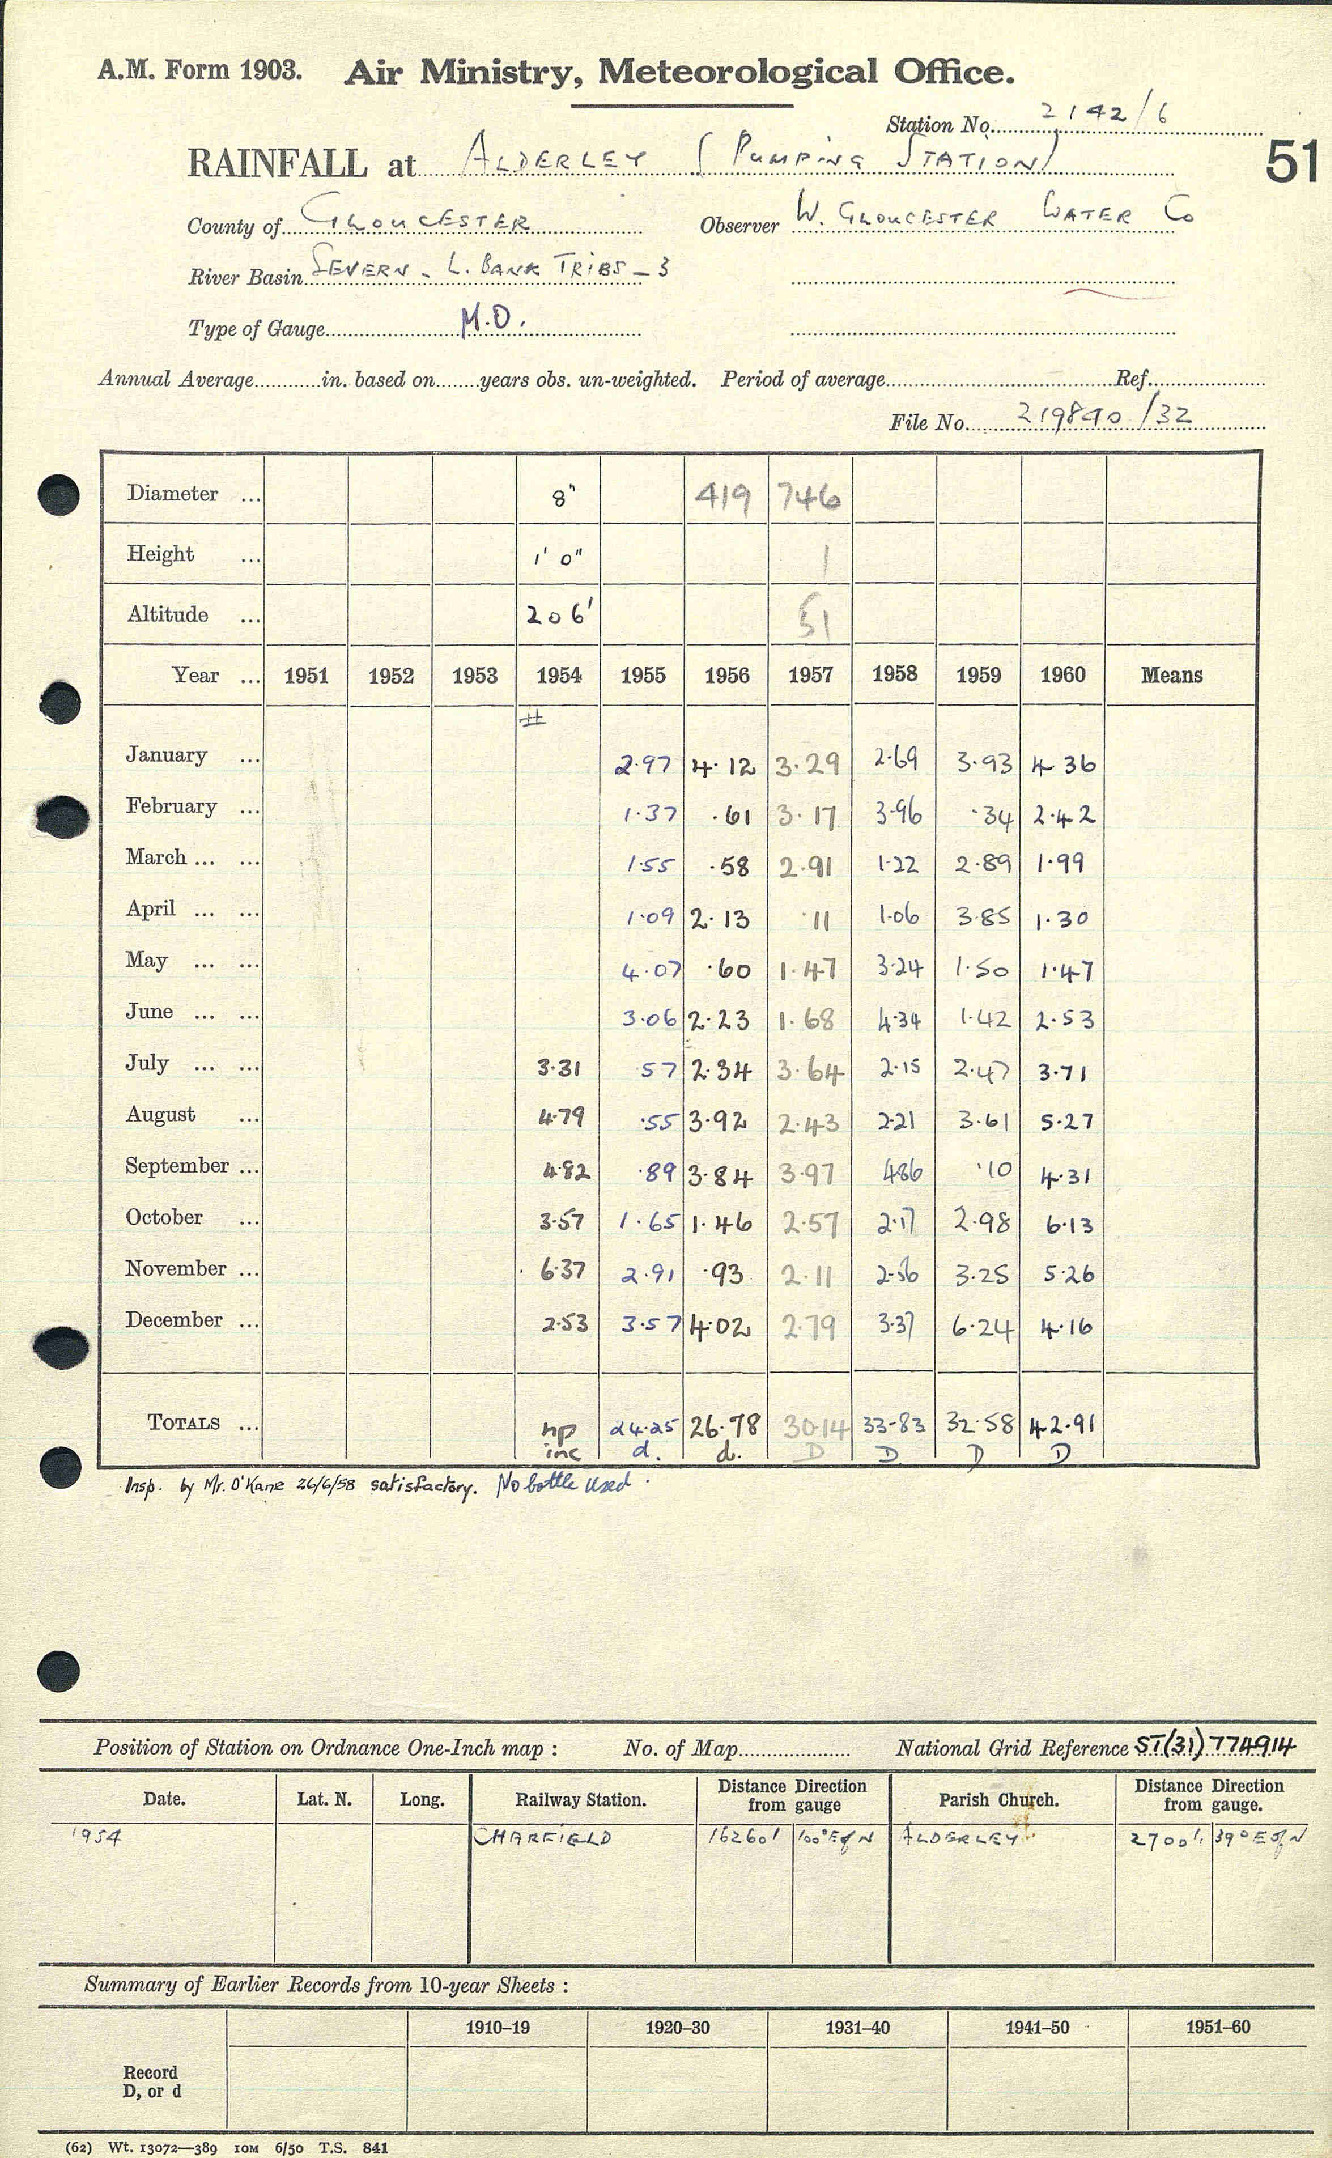 A.M. Form 1903. Air Ministry, Meteorological Office.
Station No. 2142/6
RAINFALL at ALDERLEY (PUMPING STATION)
51
County of GLOUCESTER Observer W. GLOUCESTER WATER Co
River Basin SEVERN - L. BANK TRIBS - 3
Type of Gauge M.O.
Annual Average in. based on years obs. un-weighted. Period of average Ref.
File No. 219840/32
Diameter ... 8" 419 746
Height ... 1' 0" 1
Altitude ... 206' 51
Year ... 1951 1952 1953 1954 1955 1956 1957 1958 1959 1960 Means
#
January ... 2.97 4.12 3.29 2.69 3.93 4.36
February ... 1.37 .61 3.17 3.96 .34 2.42
March ... ... 1.55 .58 2.91 1.22 2.89 1.99
April ... ... 1.09 2.13 .11 1.06 3.85 1.30
May ... ... 4.07 .60 1.47 3.24 1.50 1.47
June ... ... 3.06 2.23 1.68 4.34 1.42 2.53
July ... ... 3.31 .57 2.34 3.64 2.15 2.47 3.71
August ... 4.79 .55 3.92 2.43 2.21 3.61 5.27
September ... 4.82 .89 3.84 3.97 4.86 .10 4.31
October ... 3.57 1.65 1.46 2.57 2.17 2.98 6.13
November ... 6.37 2.91 .93 2.11 2.56 3.25 5.26
December ... 2.53 3.57 4.02 2.79 3.37 6.24 4.16
TOTALS ... np 24.25 26.78 30.14 33.83 32.58 42.91
inc d. d. D D D D
Insp. by Mr. O'Kane 26/6/58 satisfactory. No bottle used.
Position of Station on Ordnance One-Inch map : No. of Map National Grid Reference ST(31)774914
Date. Lat. N. Long. Railway Station. Distance from gauge Direction Parish Church. Distance from gauge. Direction
1954 CHARFIELD 16260' 100° E of N ALDERLEY 2700' 39° E of N
Summary of Earlier Records from 10-year Sheets :
1910–19 1920–30 1931–40 1941–50 1951–60
Record
D, or d
(62) Wt. 13072—389 10M 6/50 T.S. 841